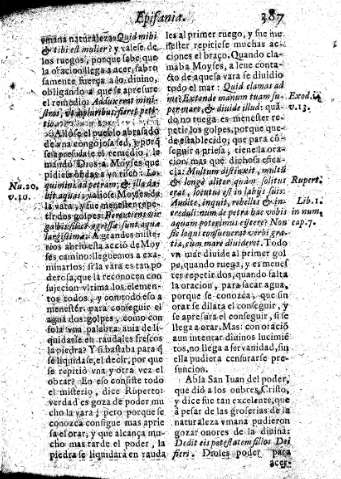 Epifania. 387
umana naturaleza: Quid mihi
& tibi est mulier? y valese de
los ruegos, porque sabe que
la oracion llega a acer, sabro-
samente fuerça a lo divino,
obligando a que se apresure
el remedio
Allòse el pueblo abrasado
de una congojosa sed, y porq̃
se apresurase el remedio, lo
mandò Dios a Moyses que
pidiese bebida a un risco: Lo-
quimini ad petram, & illa da-
bit aquas
ter dos golpes
largissimæ. A grandes miste-
rios abriò esta acciò de Moy
ses camino: lleguemos a exa-
minarlos: si la vara es tan po
derosa, que la reconocen con
sujecion vitima los elemen-
tos todos, y con todo eso a
menester para conseguir el
agua dos golpes: como con
sola una palabra auia de li-
quidarse en raudales frescos
la piedra? Y si bastaba para q̃
se liquidase, el decir, por que
se repitiò una y otra vez el
obrar? En eso consiste todo
el misterio, dice Ruperto:
verdad es goza de poder mu
cho la vara; pero porque se
conozca consigue mas aprie
sa el orar, y que alcança mu-
cho mas tarde el poder, la
piedra se liquidarà en rauda
les al primer ruego, y fue me
nester repitiese muchas ac-
ciones el braço. Quando cla-
maba Moyses, a leue contac-
to de aquesa vara se diuidio
todo el mar: Quid clamas ad
me? Extende manum tuam su-
per mare, & diuide illud: quã-
do no ruega es menester repe-
tir los golpes, porque que-
de establecido, que para có-
seguir a priesa, tiene la ora-
cion, mas que dichosa efica-
cia: Multum distinxit, multũ
& longè aliter, quàm solitus
erat, locutus est in labijs suis:
Audite, inquit, rebelles & in-
creduli: num de petra hac vobis
aquam poterimus eijcere? Non
sic loqui consueuerat verbi gra-
tia, cum mare diuideret. Todo
un mar diuide al primer gol
pe, quando ruega, y es menes
ter repetir dos, quando falta
la oracion, para sacar agua,
porque se conozca, que sin
orar se dilata el conseguir, y
se apresura el conseguir, si se
llega a orar. Mas: con oraciò
aun intentar diuinos lucimiẽ
tos, no llega a ser vanidad, sin
ella pudiera censurarse pre-
suncion.
Abla San Iuan del poder,
que diò a los õbres Cristo,
y dice fue tan excelente, que
à pesar de las groserias de la
naturaleza umana pudieron
gozar onores de la diuina:
Dedit eis potestatem filios Dei
fieri. Dioles poder para
acer-
Nu. 20,
v. 10.
Exod. 14
v. 13.
Rupert.
Lib. 1.
in num,
cap. 7.